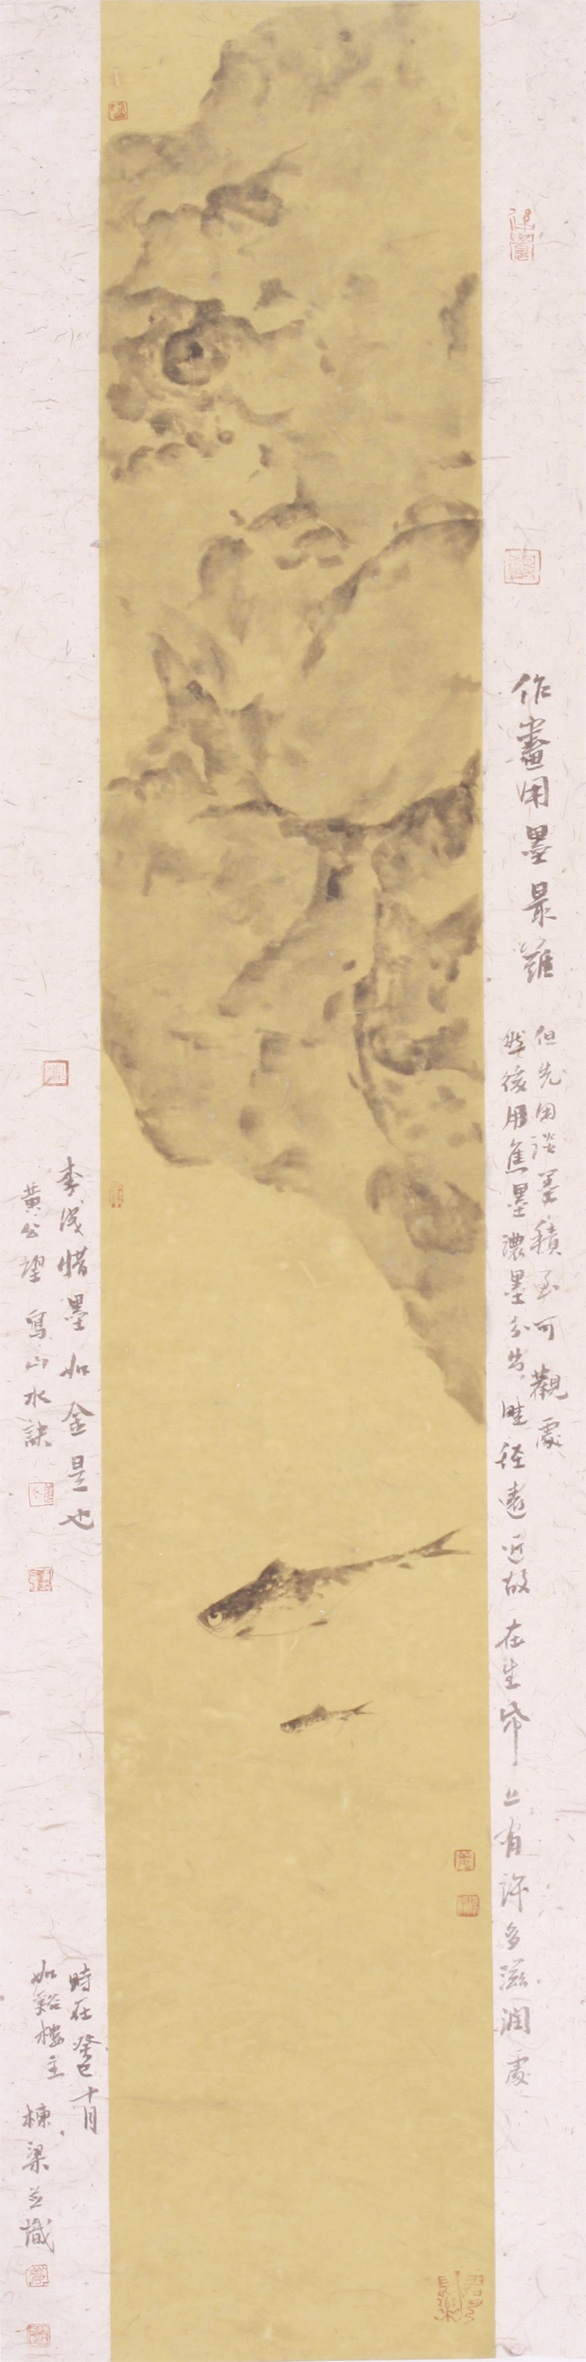 作畫用墨最難
但先用淡墨積至可觀處
然後用焦墨濃墨分出畦徑遠近故在生帋上有許多滋潤處
李成惜墨如金是也
黃公望寫山水訣
時在癸巳十月
如谿樓主棟梁並識